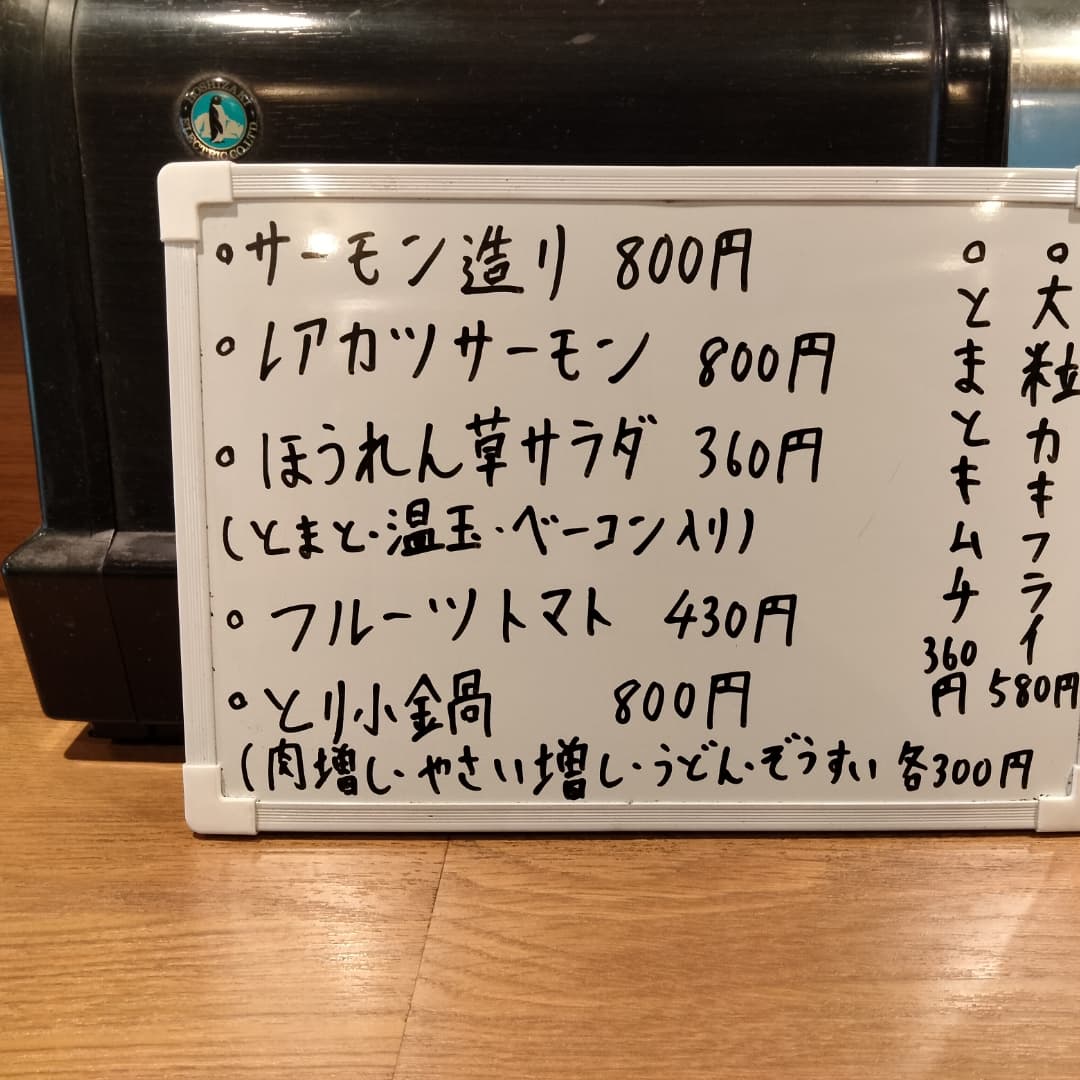 HOSHIZAKI ELECTRIC CO.,LTD.
○サーモン造り 800円
○レアカツサーモン 800円
○ほうれん草サラダ 360円
(とまと・温玉・ベーコン入り)
○フルーツトマト 430円
○とり小鍋 800円
(肉増し・やさい増し・うどん・ぞうすい 各300円
○大粒カキフライ 580円
○とまとキムチ 360円